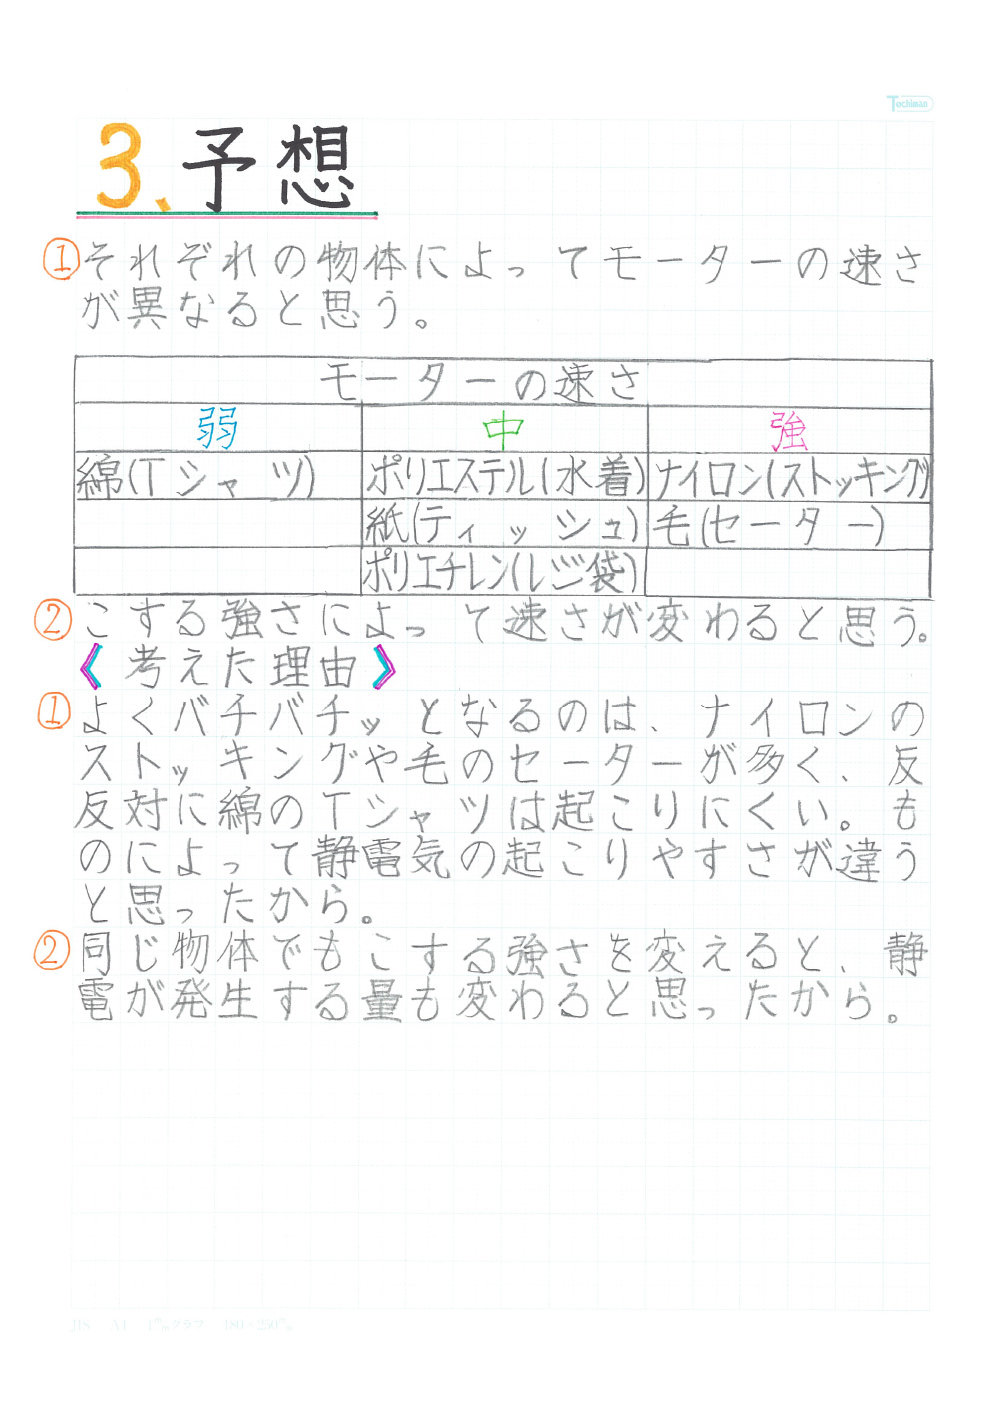 Tochiman
3、予想
①それぞれの物体によってモーターの速さ
が異なると思う。
モーターの速さ
弱 中 強
綿(Tシャツ) ポリエステル(水着) ナイロン(ストッキング)
紙(ティッシュ) 毛(セーター)
ポリエチレン(レジ袋)
②こする強さによって速さが変わると思う。
《考えた理由》
①よくバチバチッとなるのは、ナイロンの
ストッキングや毛のセーターが多く、反
反対に綿のTシャツは起こりにくい。も
のによって静電気の起こりやすさが違う
と思ったから。
②同じ物体でもこする強さを変えると、静
電が発生する量も変わると思ったから。
JIS A4 1㎜グラフ 180×250㎜